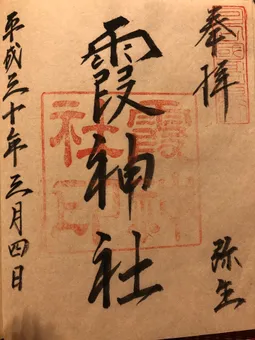 奉拝
弥生
霞神社
霞神社印
平成三十年三月四日